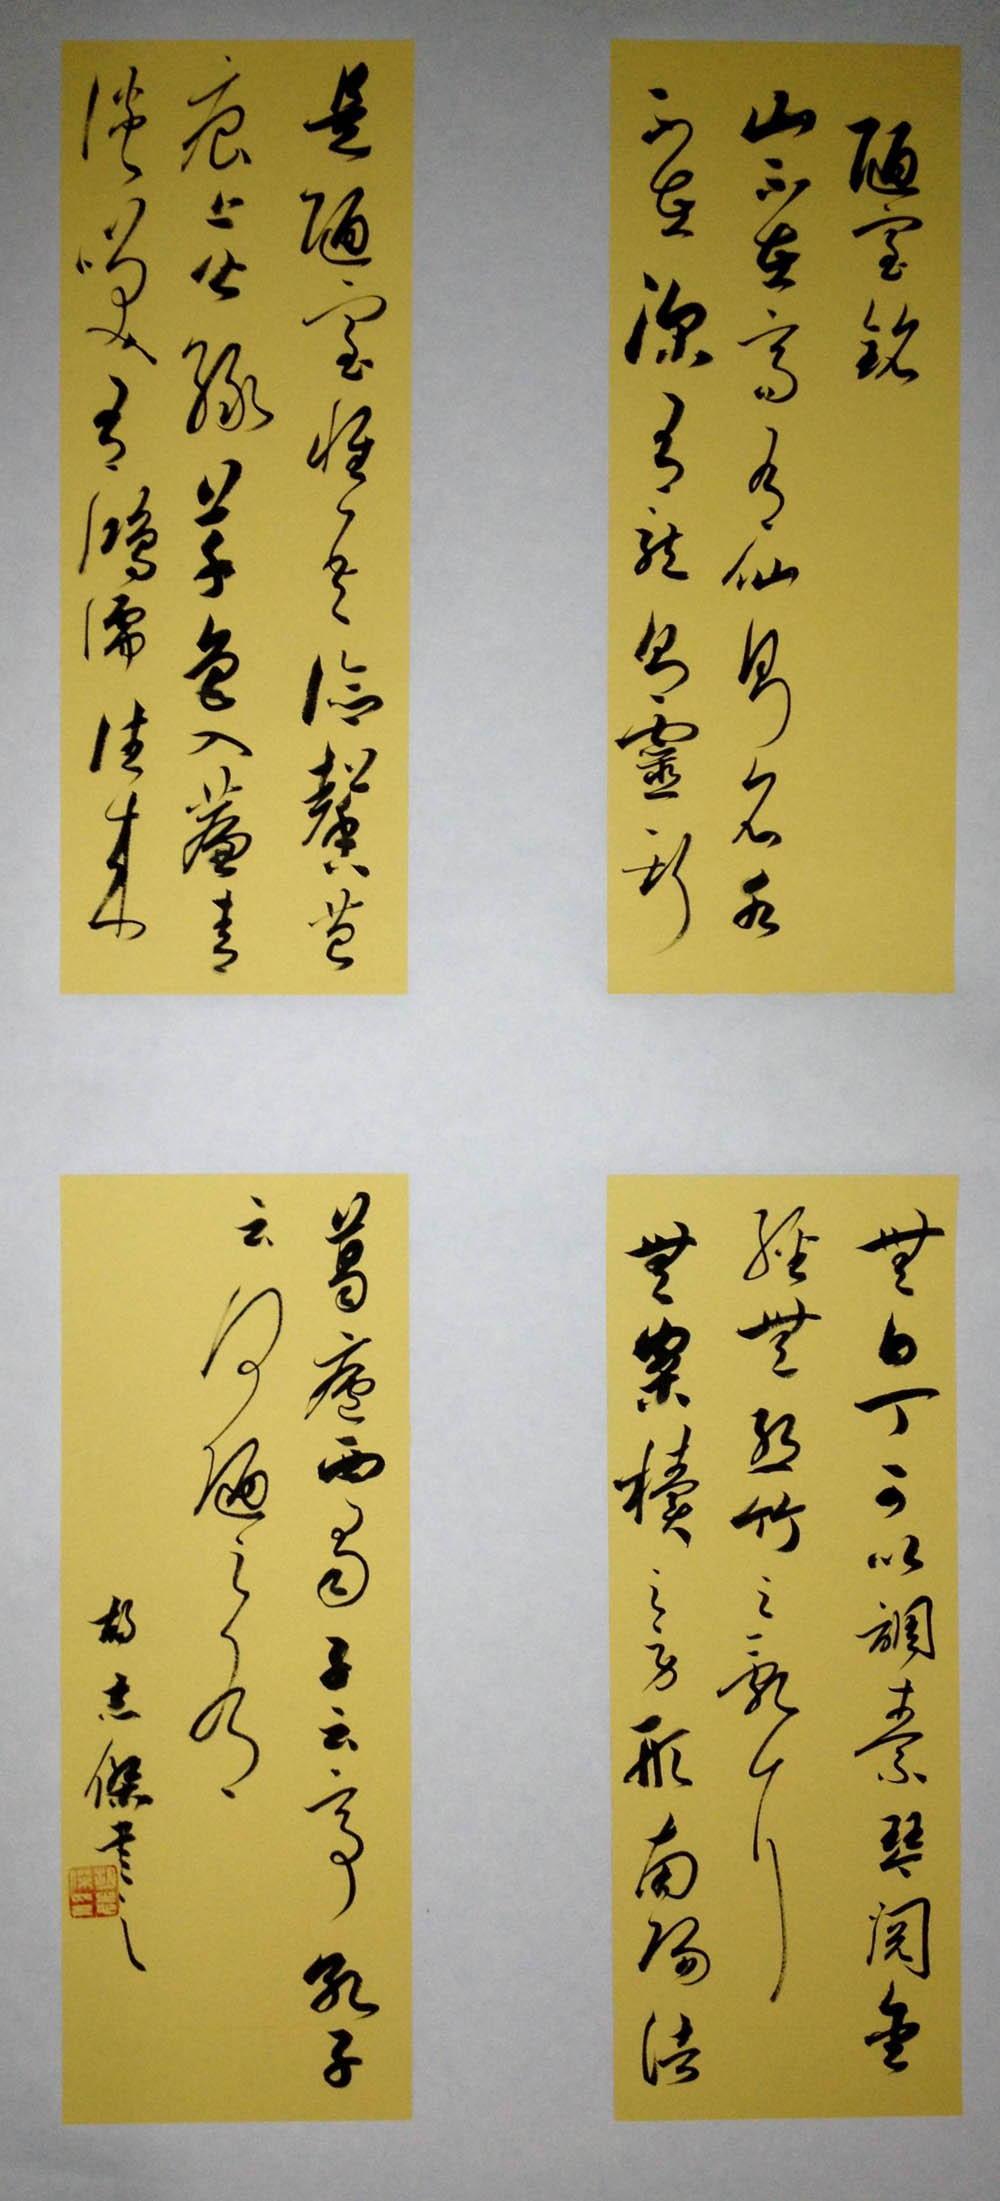 陋室銘
山不在高有仙則名水
不在深有龍則靈斯
是陋室惟吾德馨苔
痕上階綠草色入簾青
談笑有鴻儒往來
無白丁可以調素琴閱金
經無絲竹之亂耳
無案牘之勞形南陽諸
葛廬西蜀子云亭孔子
云何陋之有
胡志傑書之